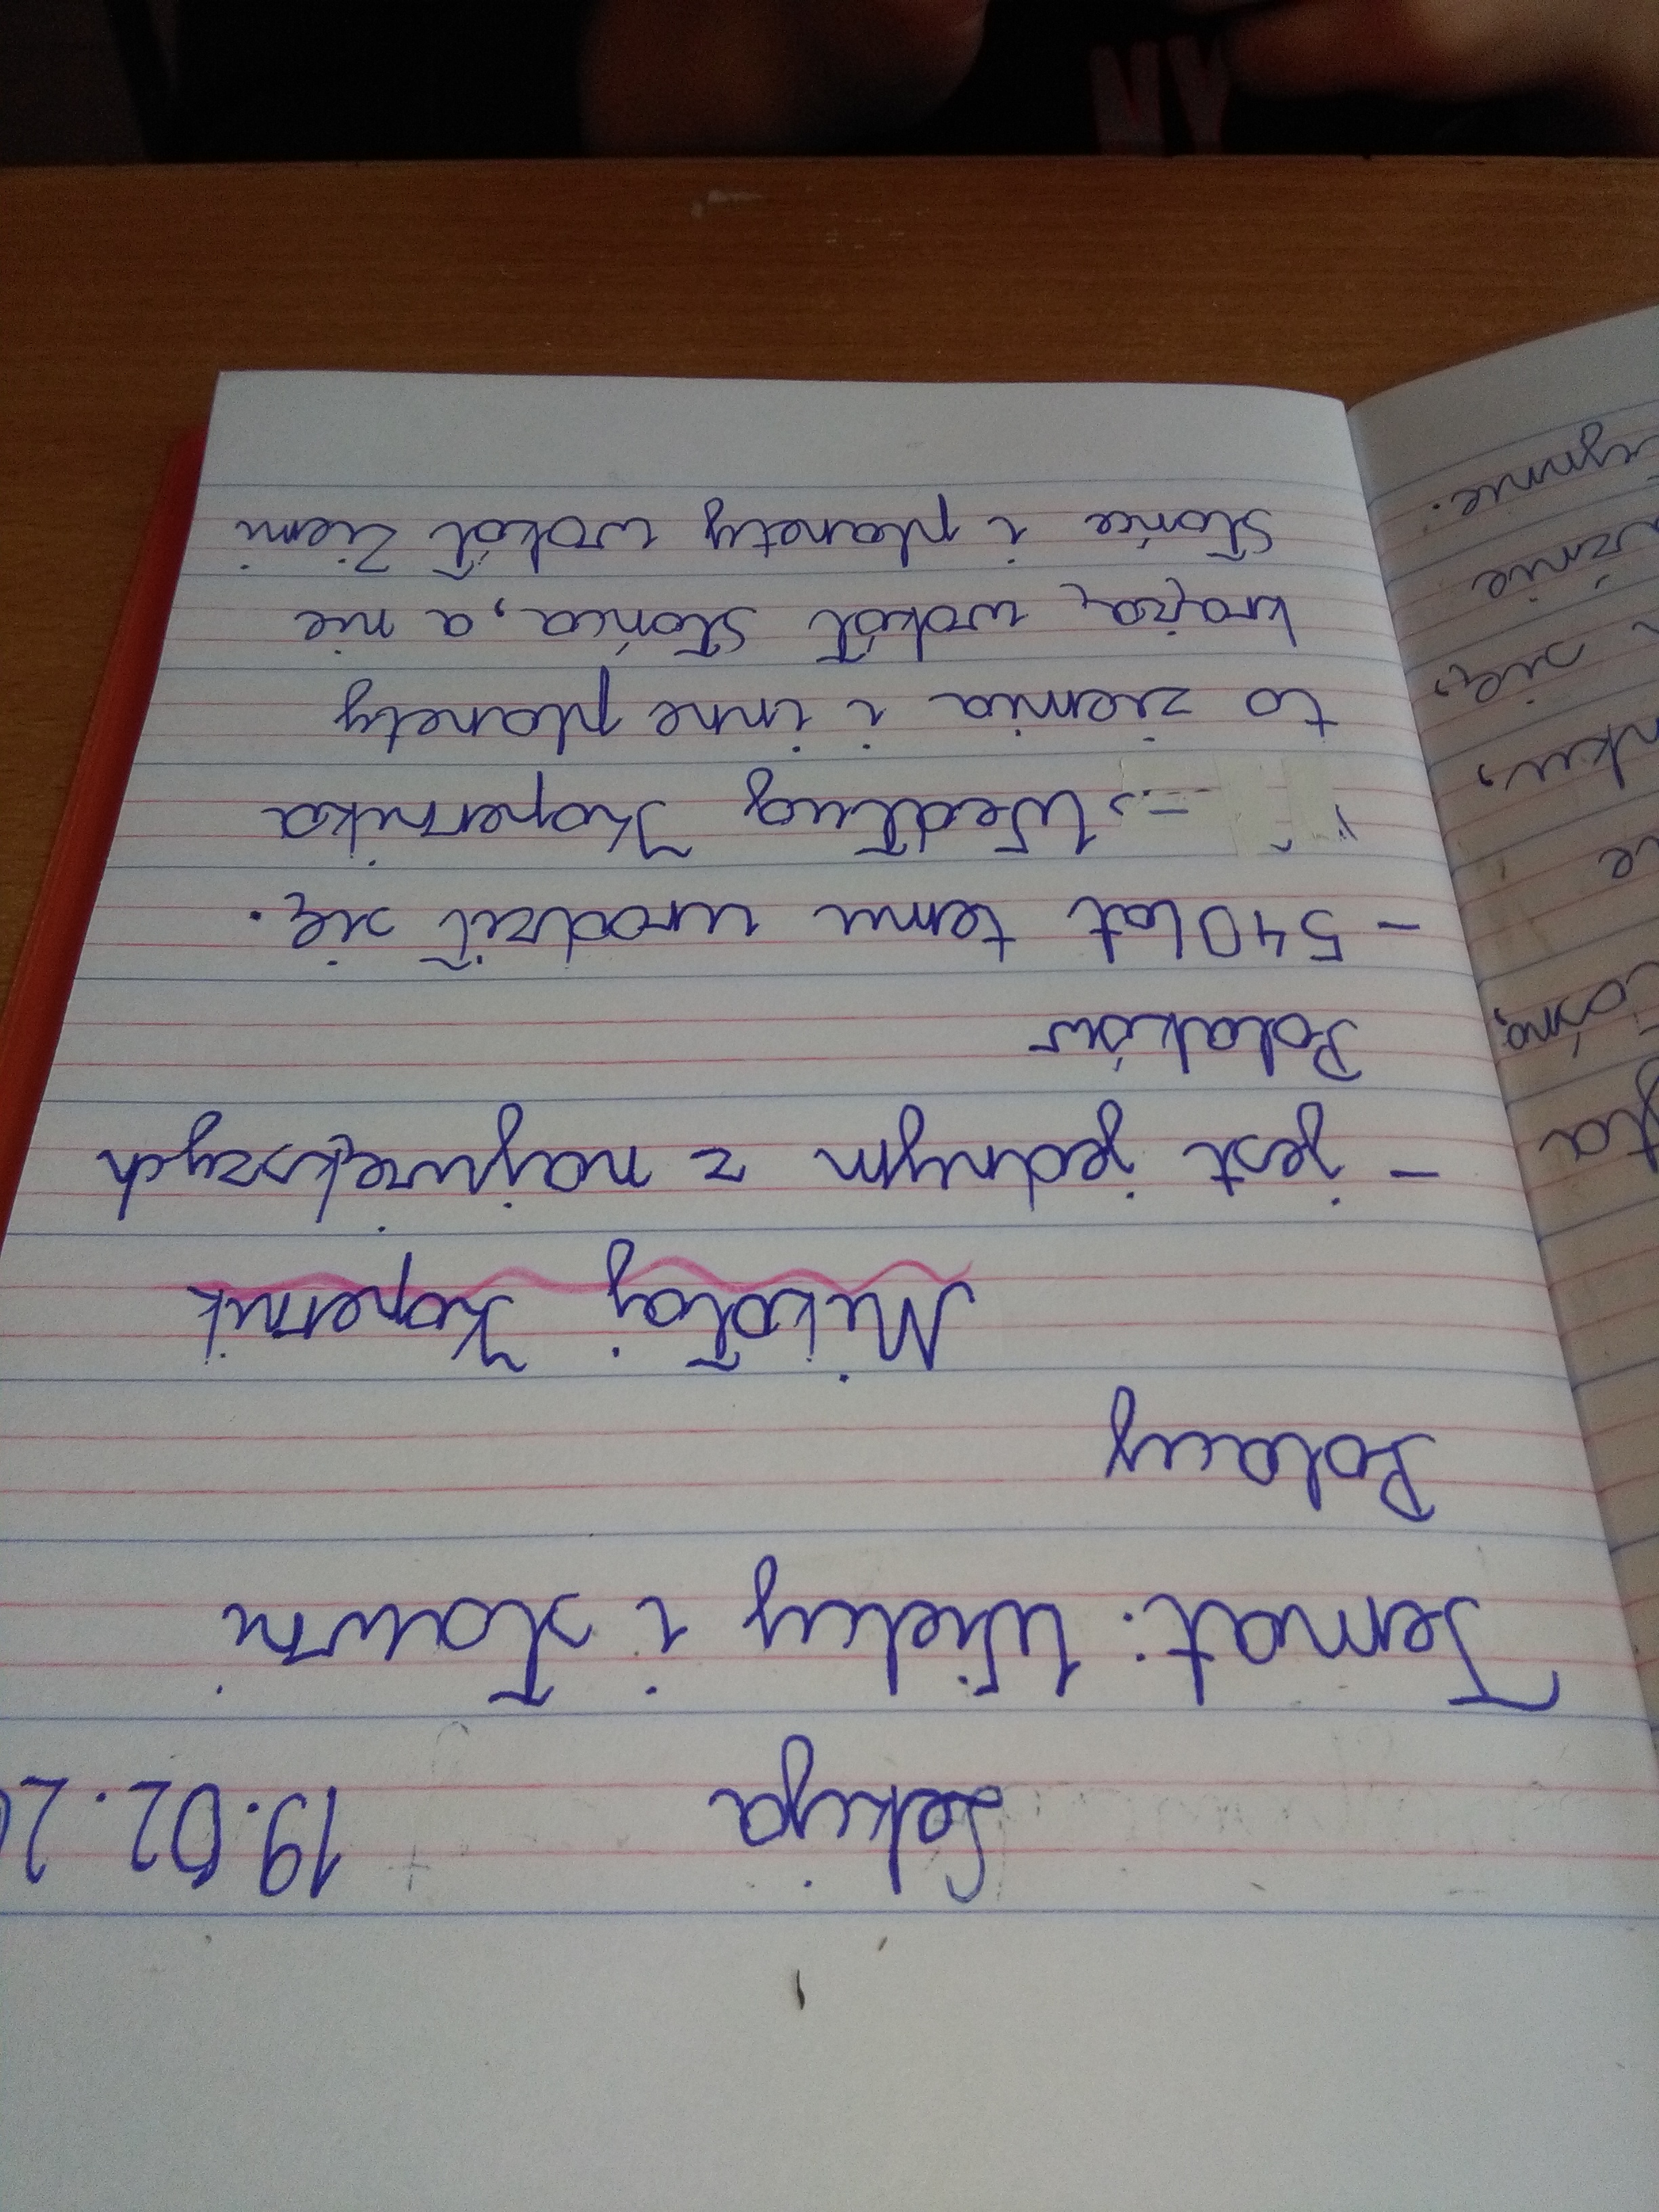 Lekcja 19.02.2
Temat: Wielcy i sławni
Polacy
Mikołaj Kopernik
- jest jednym z największych
Polaków
- 540 lat temu urodził się.
- Według Kopernika
to ziemia i inne planety
krążą wokół Słońca, a nie
Słońce i planety wokół Ziemi